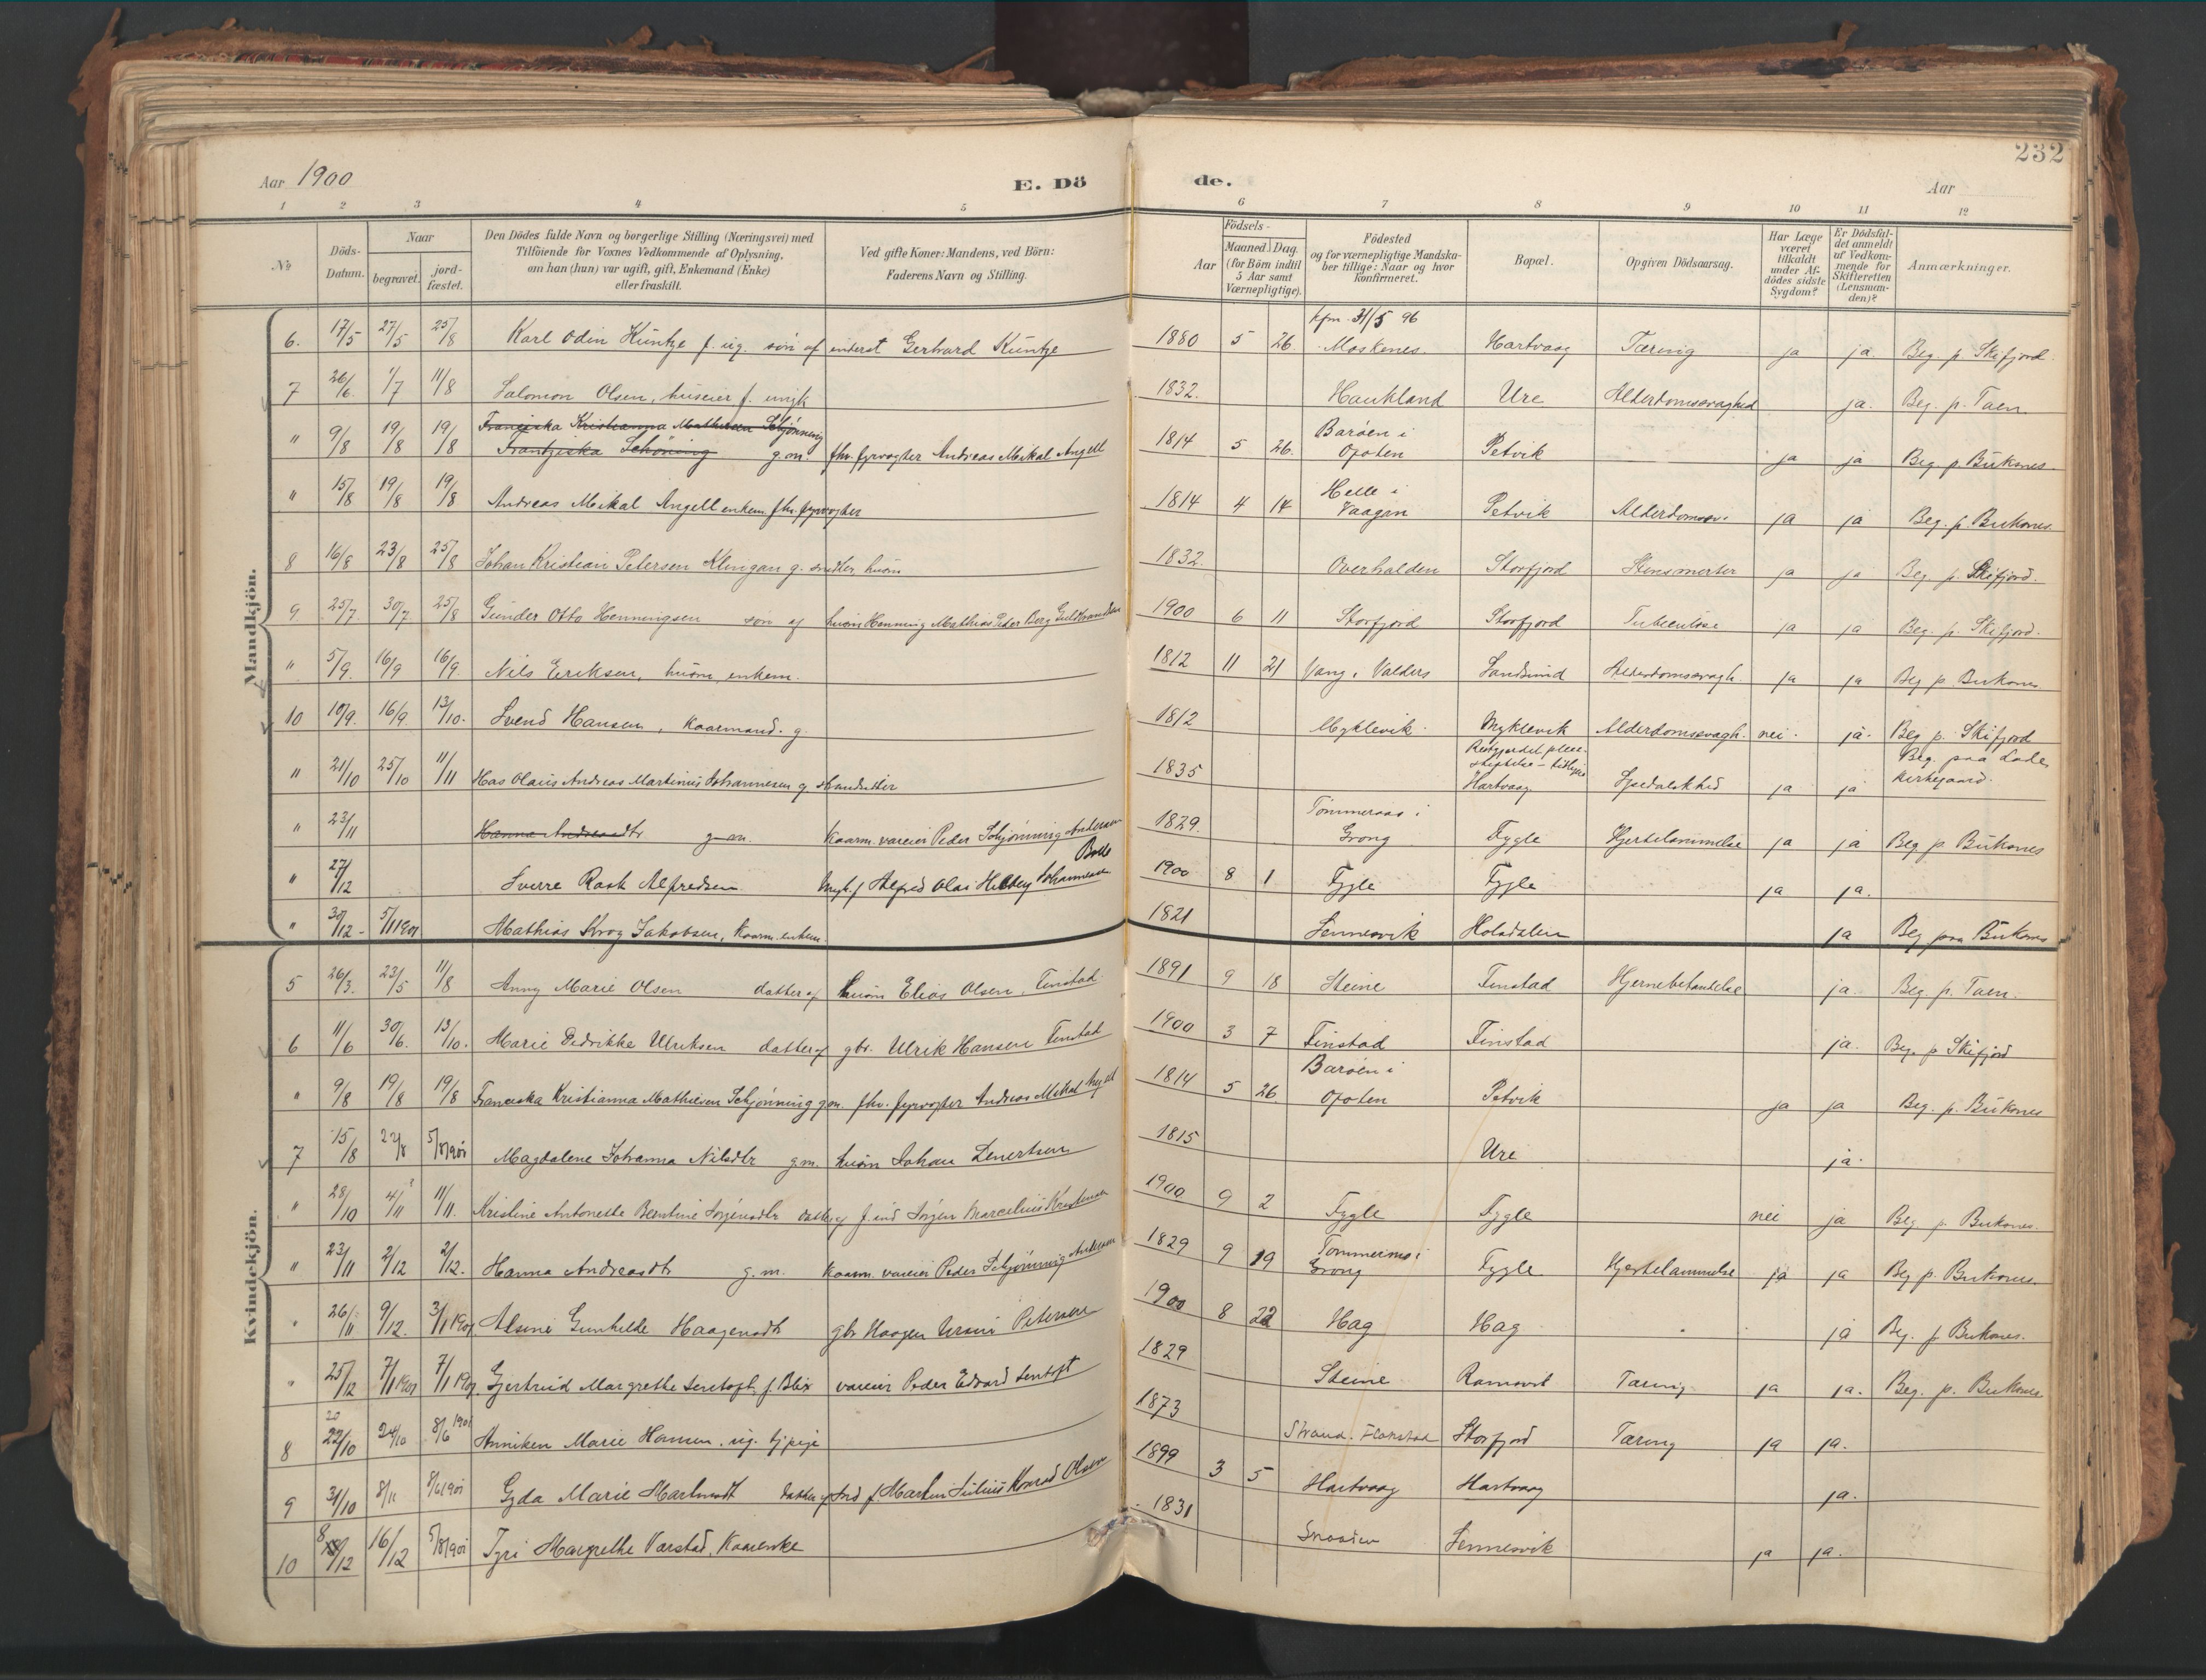 232
Aar 1900 E. Dö de. Aar
1 2 3 4 5 6 7 8 9 10 11 12
No Döds-Datum. Naar begravet. jord-fæstet. Den Dödes fulde Navn og borgerlige Stilling (Næringsvei) med Tilföiende for Voxnes Vedkommende af Oplysning, om han (hun) var ugift, gift, Enkemand (Enke) eller fraskilt. Ved gifte Koner: Mandens, ved Börn: Faderens Navn og Stilling. Födsels- Aar Maaned Dag (for Börn indtil 5 Aar samt Værnepligtige). Födested og for værnepligtige Mandskaber tillige: Naar og hvor konfirmeret. Bopæl. Opgiven Dödsaarsag. Har Læge været tilkaldt under Afdödes sidste Sygdom? Er Dödsfaldet anmeldt af Vedkommende for Skifteretten (Lensmanden)? Anmærkninger.
Mandkjön.
6. 17/5 27/5 25/8 Karl Odin Küntze f. ug. sön af inderst Gerhard Küntze 1880 5 26 kfm. 31/5 96 Moskenes. Hartvaag Tæring ja ja. Beg. p. Skifjord
7 26/6 1/7 11/8 Salomon Olsen, huseier f. ungk 1832. Haukland Ure Alderdomssvaghed ja. Beg. p. Taen
" 9/8 19/8 19/8 Franziska Kristianna Mathiesen Schjønning
Frantziska Schöning g.m. fhv. fyrvogter Andreas Mikal Angell 1814 5 26. Barøen i Ofoten Petvik ja ja Beg p Buksnes.
" 15/8 19/8 19/8 Andreas Mikal Angell enkem. fhv. fyrvogter 1814 4 14 Helle i Vaagan Petvik Alderdomssv. ja ja Beg. p. Buksnes
8 16/8 23/8 25/8 Johan Kristian Petersen Klingan g. snedker, husm 1832. Overhalden Storfjord Stensmerter ja ja Beg. p. Skifjord.
9 25/7 30/7. 25/8 Gunder Otto Henningsen son af husm Henning Mathias Peder Berg Guldbrandsen 1900 6 11 Storfjord Storfjord Tuberculose ja ja Beg. p. Skifjord.
" 5/9. 16/9 16/9. Nils Eriksen, husm, enkem. 1812 11 21 Vang i Valders Sandsund Alderdomssvagh. ja ja Beg p. Buksnes
10 10/9. 16/9. 13/10. Svend Hansen, Kaarmand. g. 1812 Myklevik. Myklevik Alderdomssvagh. nei. ja. Beg p. Skifjord
" 21/10 25/10 11/11 Has Olaus Andreas Martinus Johannesen g. strandsidder 1835 Reitgjerdet pleie-stiftelse - tidligere Hartvaag Spedalskhed ja ja Beg. paa Lade kirkegaard.
" 23/11 Hanna Andreasdtr g.m. Kaarm. væreier Peder Schjønning Andersen 1829. Tömmeraas i Grong Fygle Hjertelammelse ja ja Beg p. Buksnes
" 27/12 Sverre Rask Alfredsen Ungk. f Alfred Olai Hilberg Johannesen Bolle 1900 8 1 Fygle Fygle ja ja.
" 30/12 - 5/1 1901 Mathias Krog Jakobsen, Kaarm. enkem. 1821 Sennesvik Holsdalen ja Beg paa Buksnes
Kvindekjön.
5 26/3. 23/5 11/8 Anny Marie Olsen datter af husm Elias Olsen, Finstad 1891 9 18 Steine Finstad Hjernebetændelse ja. Beg. p. Taen.
6 11/6 30/6. 13/10. Marie Didrikke Ulriksen datter af gbr. Ulrik Hansen Finstad 1900 3 7 Finstad Finstad ja. Beg. p Skifjord
" 9/8 19/8 19/8 Franciska Kristianna Mathiesen Schjønning g.m. fhv. fyrvogter Andreas Mikal Angell 1814 5 26. Barøen i Ofoten Petvik ja ja Beg. p. Buksnes
7 15/8 22/8 5/8 1901 Magdalene Johanna Nilsdtr g.m. husm Johan Lenertsen 1815 Ure ja.
" 28/10 4/11 11/11. Kristine Antonette Berntine Jørgensdtr datter af f. ind Jørgen Marcelius Kristensen 1900 9 2 Fygle Fygle nei ja Beg. p. Buksnes.
" 23/11 2/12 2/12. Hanna Andreasdtr g.m. Kaarm. væreier Peder Schjønning Andersen 1829 9 19 Tömmeraas i Grong Fygle Hjertelammelse ja ja Beg p. Buksnes
" 26/11 9/12. 3/1 1901 Alsine Gunhilde Haagensdtr gbr Haagen Ursin Petersen 1900 8 22 Hag Hag ja Beg. p Buksnes.
" 25/12 7/1 1901 7/1 1901. Gjertrud Margrethe Lentoft f. Blix væreier Peder Edvard Lentoft 1829 Steine Ramsvik Tæring ja ja. Beg. p. Buksnes
8 20 22/10 24/10 8/6 1901 Anniken Marie Hansen. ug. tj.pige 1873 Strand. Flakstad Storfjord Tæring ja ja.
9 31/10 8/11 8/6 1901 Gyda Marie Martinsdt datter af Ind f. Martin Julius Konrad Olsen 1899 3 5 Hartvaag Hartvaag ja.
10 8/12 16/12 5/8 1901 Jyri Margrethe Varstad, Kaarenke 1831 Sennesvik ja ja.